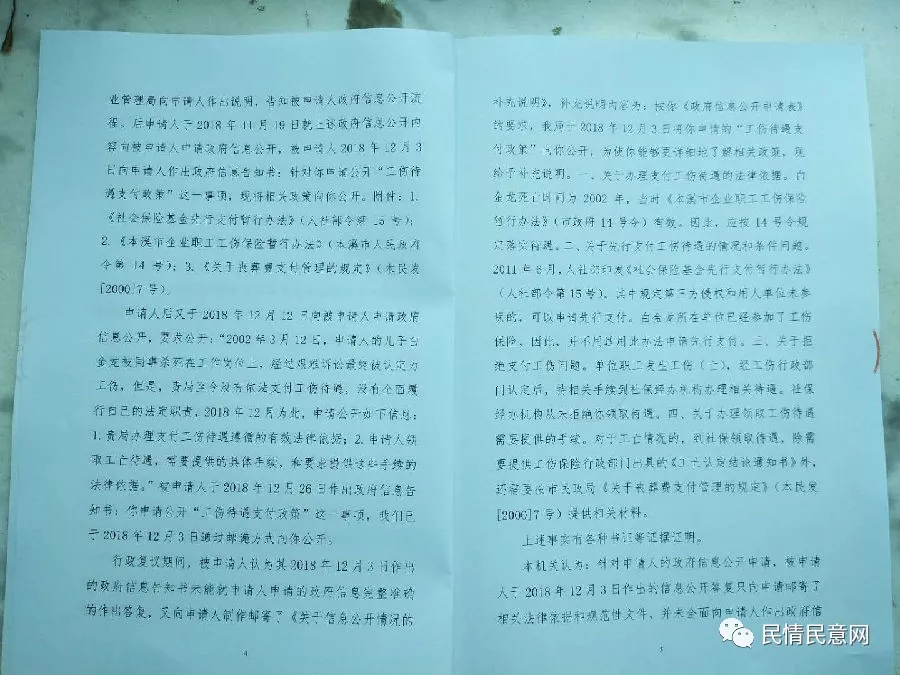 业管理局向申请人作出说明，告知被申请人政府信息公开流
程。后申请人于 2018 年 11 月 19 日就上述政府信息公开内
容向被申请人申请政府信息公开，被申请人 2018 年 12 月 3
日向申请人作出政府信息告知书：针对你申请公开“工伤待
遇支付政策”这一事项，现将相关政策向你公开。附件：1.
《社会保险基金先行支付暂行办法》（人社部令第 15 号）；
2.《本溪市企业职工工伤保险暂行办法》（本溪市人民政府
令第 14 号）；3.《关于丧葬费支付管理的规定》（本民发
[2000]7 号）。
申请人后又于 2018 年 12 月 12 日向被申请人申请政府
信息公开，要求公开：“2002 年 3 月 12 日，申请人的儿子白
金龙被同事杀死在工作岗位上，经过艰难诉讼最终被认定为
工伤，但是，贵局至今没有依法支付工伤待遇，没有全面履
行自己的法定职责，2018 年 12 月为此，申请公开如下信息：
1.贵局办理支付工伤待遇遵循的有效法律依据；2.申请人领
取工亡待遇，需要提供的具体手续，和要求提供这些手续的
法律依据。”被申请人于 2018 年 12 月 26 日作出政府信息告
知书：你申请公开“工伤待遇支付政策”这一事项，我们已
于 2018 年 12 月 3 日通过邮递方式向你公开。
行政复议期间，被申请人认为其 2018 年 12 月 3 日作出
的政府信息告知书未能就申请人申请的政府信息完整准确
的作出答复，又向申请人制作邮寄了《关于信息公开情况的
4
补充说明》，补充说明内容为：按你《政府信息公开申请表》
的要求，我局于 2018 年 12 月 3 日将你申请的“工伤待遇支
付政策”向你公开，为使你能够更详细地了解相关政策，现
给予补充说明。一、关于办理支付工伤待遇的法律依据。白
金龙死亡时间为 2002 年，当时《本溪市企业职工工伤保险
暂行办法》（市政府 14 号令）有效。因此，应按 14 号令规
定落实待遇。二、关于先行支付工伤待遇的情况和条件问题。
2011 年 6 月，人社部印发《社会保险基金先行支付暂行办法》
（人社部令第 15 号），其中规定第三方侵权和用人单位未参
保的，可以申请先行支付。白金龙所在单位已经参加了工伤
保险，因此，并不适用此办法申请先行支付。三、关于拒
绝支付工伤问题。单位职工发生工伤（亡），经工伤行政部
门认定后，持相关手续到社保经办机构办理相关待遇。社保
经办机构从未拒绝你领取待遇。四、关于办理领取工伤待遇
需要提供的手续。对于工亡情况的，到社保领取待遇，除需
要提供工伤保险行政部门出具的《工亡认定结论通知书》外，
还需要按市民政局《关于丧葬费支付管理的规定》（本民发
[2000]7 号）提供相关材料。
上述事实有各种书证等证据证明。
本机关认为：针对申请人的政府信息公开申请，被申请
人于 2018 年 12 月 3 日作出的信息公开答复只向申请邮寄了
相关法律依据和规范性文件，并未全面向申请人作出政府信
5
民情民意网